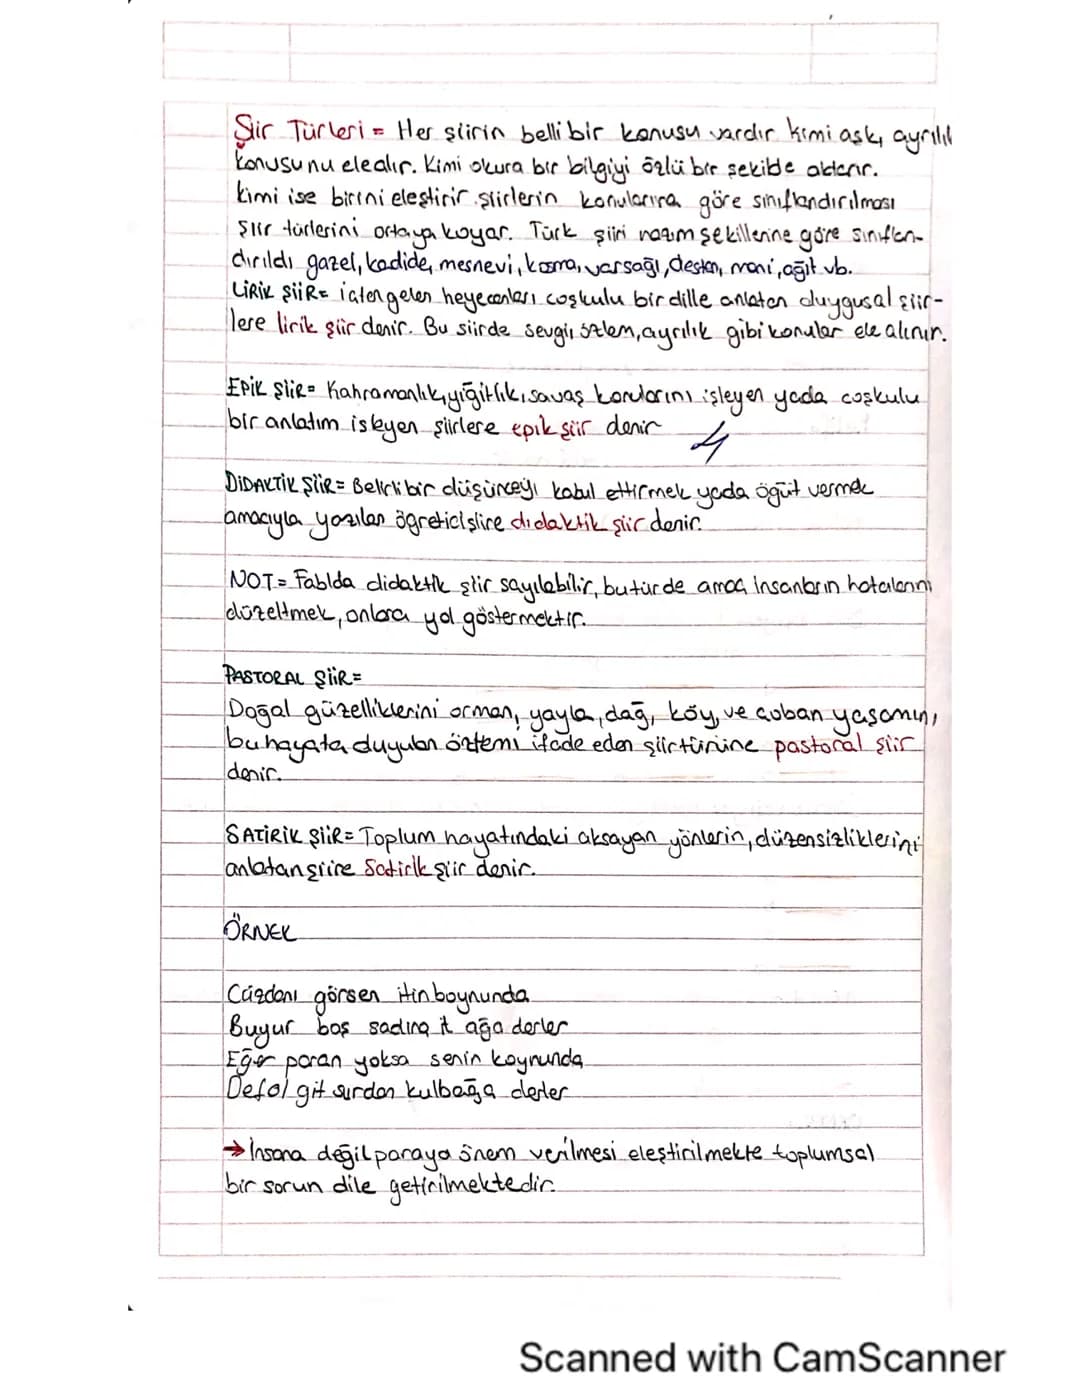 Şiir Türleri = Her şiirin belli bir konusu vardır kimi aşk, ayrılık
konusunu ele alır. Kimi okura bir bilgiyi özlü bir şekilde aktarır.
kimi ise birini eleştirir. şiirlerin konularına göre sınıflandırılması
şiir türlerini ortaya koyar. Türk şiiri nazım şekillerine göre sınıflan-
dırıldı gazel, kadide, mesnevi, koşma, varsağı, destan, mani, ağıt vb.
LİRİK ŞİİR= içten gelen heyecanları coşkulu bir dille anlatan duygusal şiir-
lere lirik şiir denir. Bu şiirde sevgi, özlem, ayrılık gibi konular ele alınır.
EPİK ŞİİR= Kahramanlık, yiğitlik, savaş konularını işleyen yada coşkulu
bir anlatım isteyen şiirlere epik şiir denir
4
DİDAKTİK ŞİİR= Belirli bir düşünceyi kabul ettirmek yada öğüt vermek
amacıyla yazılan öğretici şiire didaktik şiir denir.
NOT= Fablda didaktik şiir sayılabilir, bu türde amaç insanların hatalarını
düzeltmek, onlara yol göstermektir.
PASTORAL ŞİİR=
Doğal güzelliklerini orman, yayla, dağ, köy, ve çoban yaşamını,
bu hayata duyulan özlemi ifade eden şiir türünine pastoral şiir
denir.
SATİRİK ŞİİR= Toplum hayatındaki aksayan yönlerin, düzensizliklerini
anlatan şiire Satirik şiir denir.
ÖRNEK
Cüzdanı görsen itin boynunda
Buyur baş sadına it ağa derler
Eğer paran yoksa senin koynunda
Defol git surdan kulbağa derler
→ İnsana değil paraya önem verilmesi eleştirilmekte toplumsal
bir sorun dile getirilmektedir.
Scanned with CamScanner